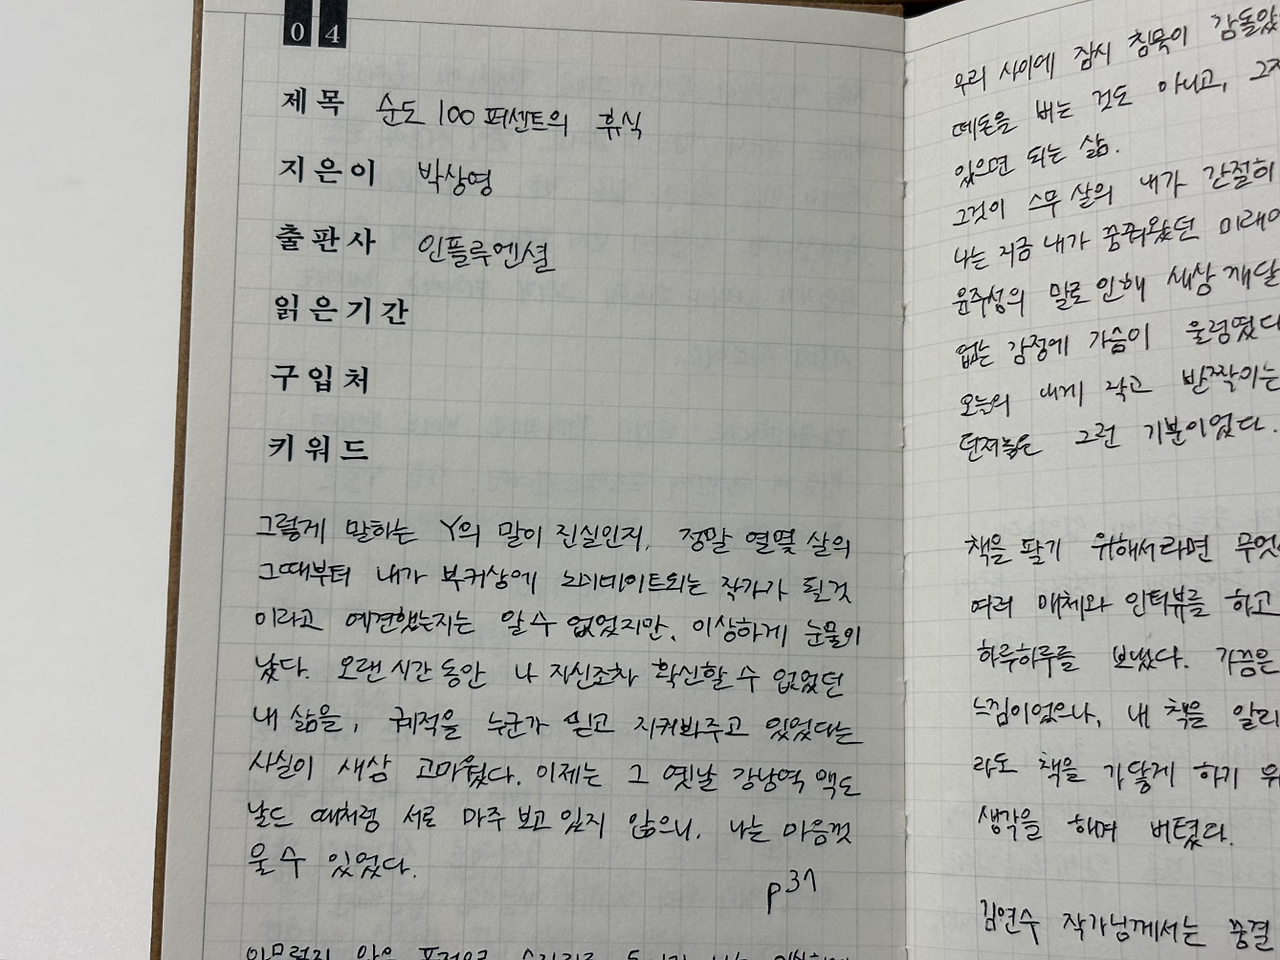 04
제목 순도 100 퍼센트의 휴식
지은이 박상영
출판사 인플루엔셜
읽은기간
구입처
키워드
그렇게 말하는 Y의 말이 진실인지, 정말 열몇 살의
그때부터 내가 부커상에 노미네이트되는 작가가 될것
이라고 예견했는지는 알수 없었지만, 이상하게 눈물이
났다. 오랜 시간 동안 나 자신조차 확신할 수 없었던
내 삶을, 궤적을 누군가 믿고 지켜봐주고 있었다는
사실이 새삼 고마웠다. 이제는 그 옛날 강남역 맥도
날드 때처럼 서로 마주 보고 있지 않으니, 나는 마음껏
울 수 있었다.
p37
우리 사이에 잠시 침묵이 감돌았
떼돈을 버는 것도 아니고, 그저
있으면 되는 삶.
그것이 스무 살의 내가 간절히
나는 지금 내가 꿈꿔왔던 미래에
윤주성의 말로 인해 새삼 깨달
없는 감정에 가슴이 울렁였다
오늘의 내게 작고 반짝이는
던져놓은 그런 기분이었다.
책을 팔기 위해서라면 무엇
여러 매체와 인터뷰를 하고
하루하루를 보냈다. 가끔은
느낌이었으나, 내 책을 알리
라도 책을 가닿게 하기 위
생각을 하며 버텼다.
김연수 작가님께서는 종결